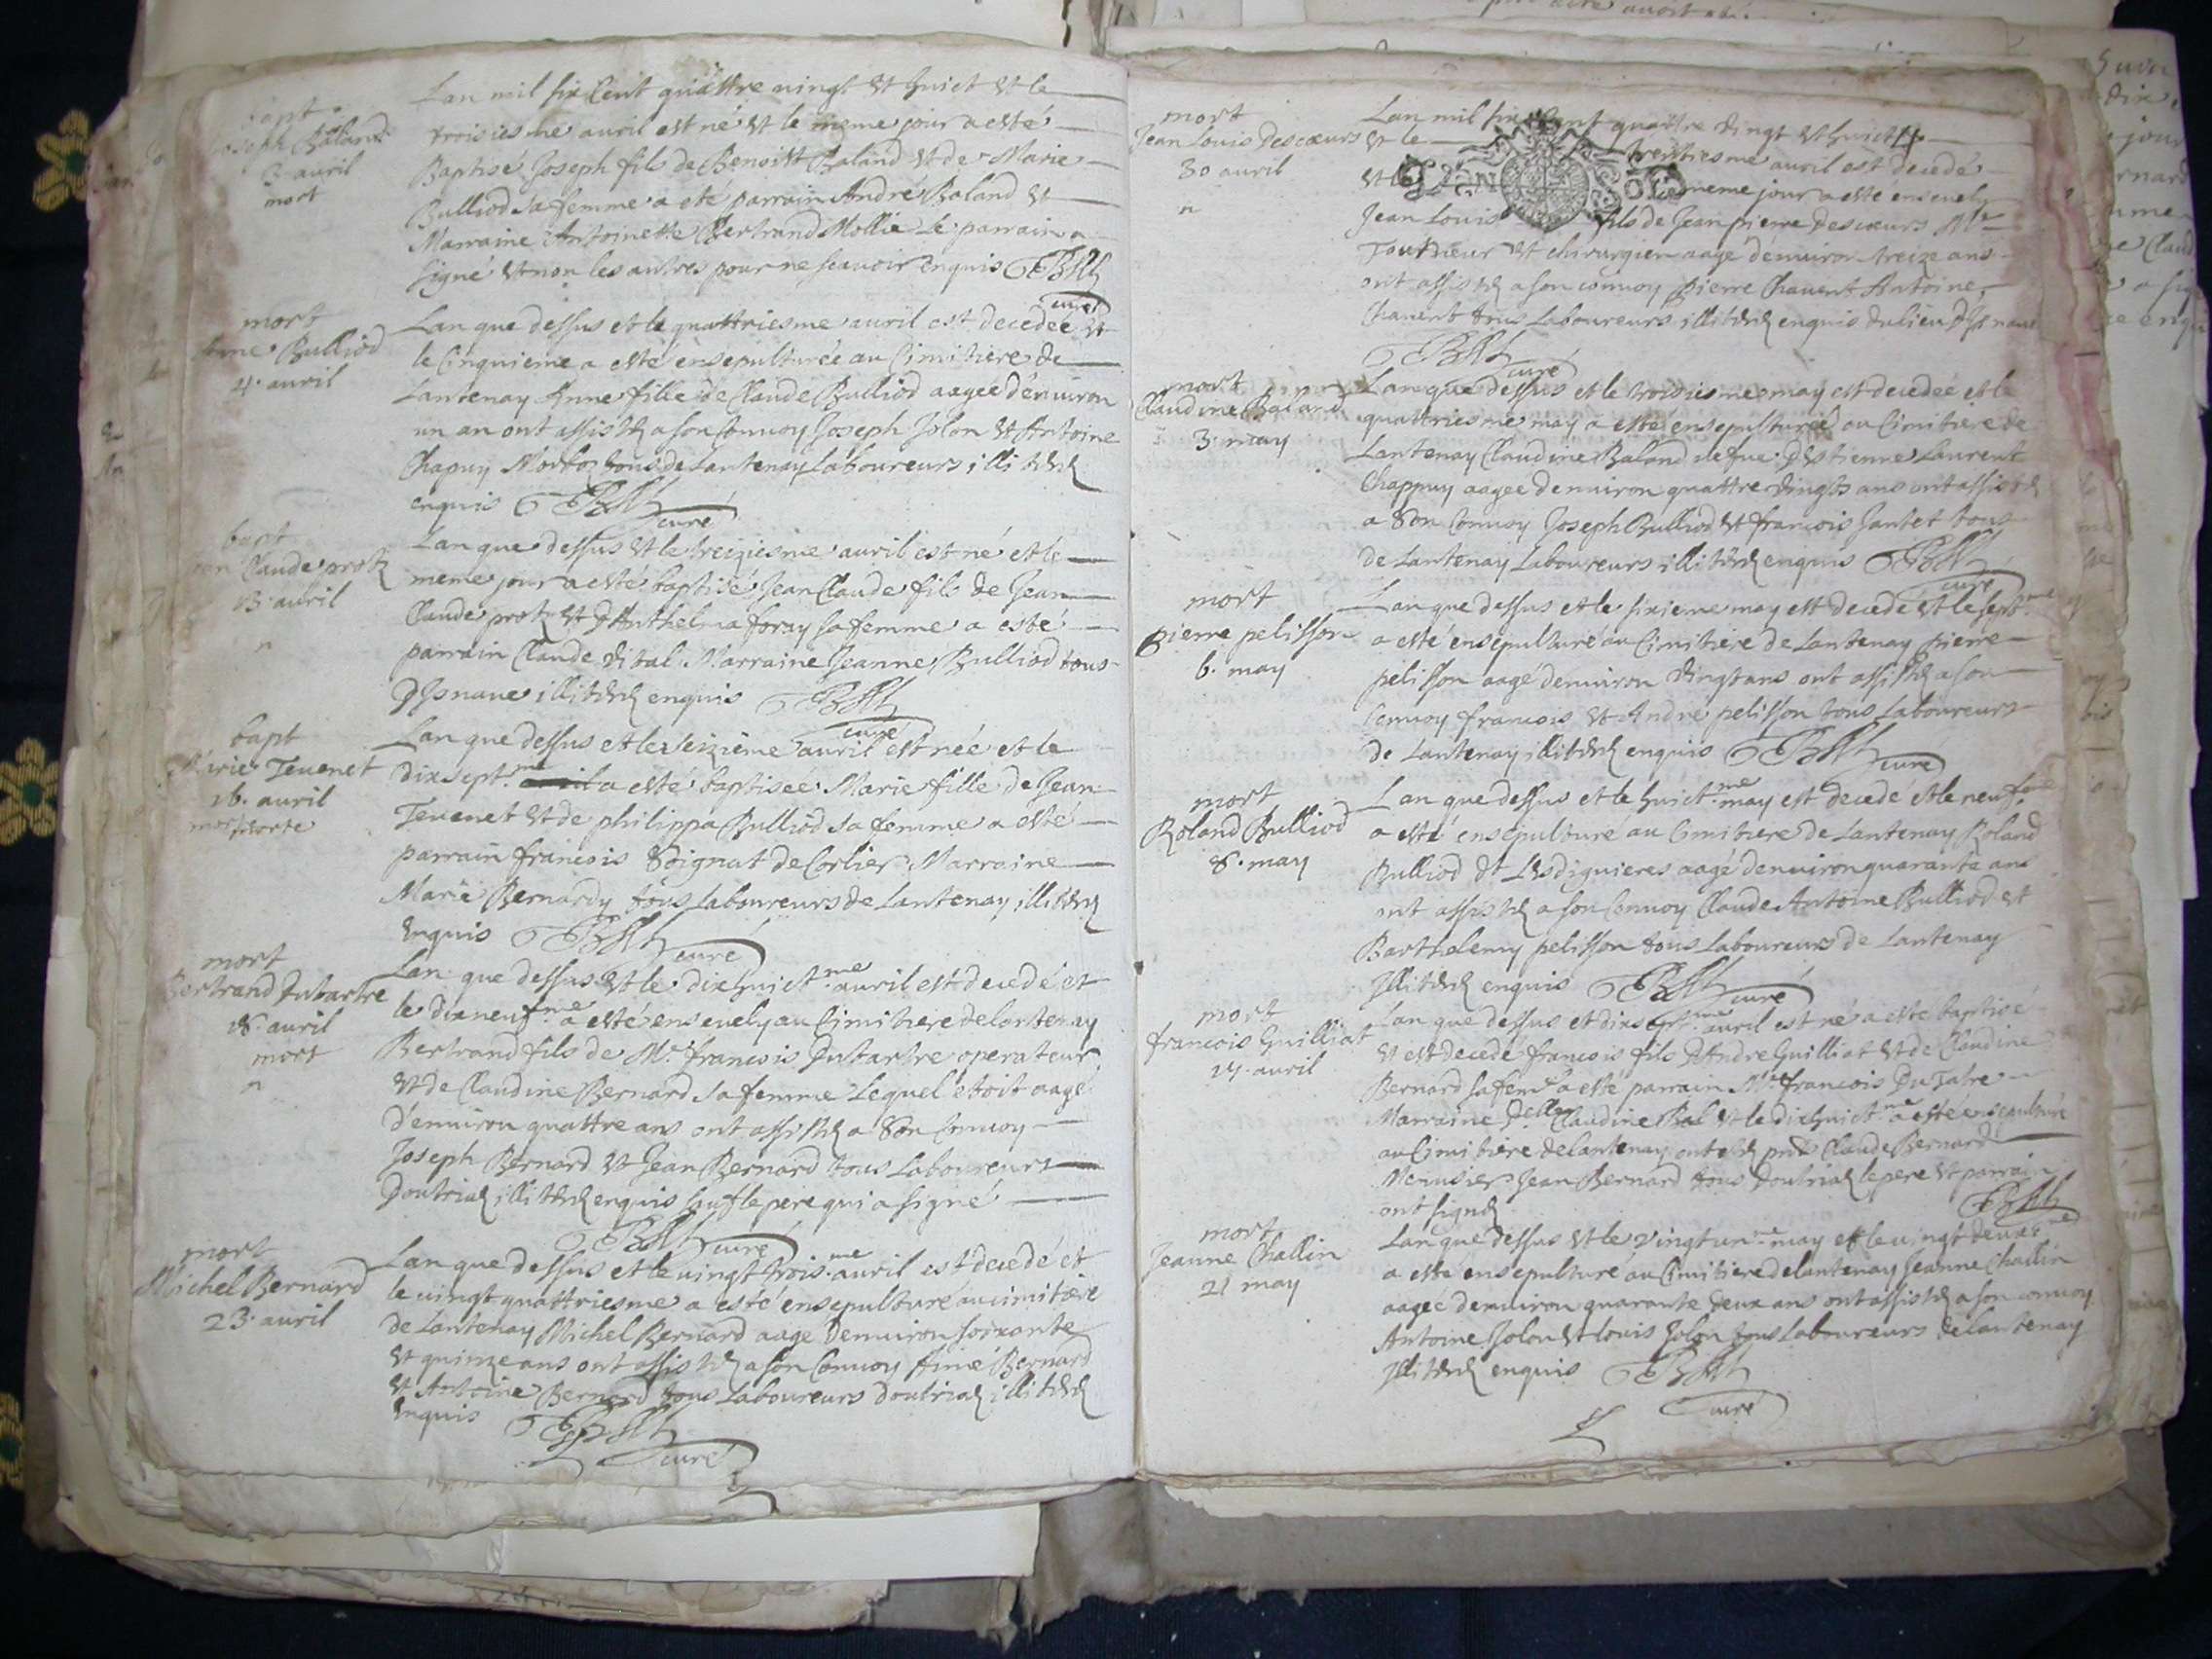 bapt
Joseph Baland
3 avril
mort
Lan mil six Cent quattre vingt et huict et le
troisiesme avril est né et le meme jour a esté
Baptisé Joseph fils de Benoistt Baland et de Marie
Bulliod sa femme a eté parrain André Baland et
Marraine Antoinette Bertrand Mollie Le parrain a
signé et non les autres pour ne scavoir enquis
curé
mort
Anne Bulliod
4. avril
Lan que dessus et le quattriesme avril est decedée et
le Cinquieme a esté ensepulturée au Cimitiere de
Lantenay Anne fille de Claude Bulliod aagee d'environ
un an ont assistés a son Convoy Joseph Jolon et Antoine
Chapuy tous de Lantenay Laboureurs illiterés
enquis
curé
bapt
Jean Claude prost
13. avril
n
Lan que dessus et le treiziesme avril est né et le
meme jour a esté baptisé Jean Claude fils de Jean
Claude prost et d'Anthelma foray sa femme a esté
parrain Claude Vital Marraine Jeanne Bulliod tous
D'Isnave illiterés enquis
curé
bapt
Marie Tevenet
16. avril
morte
Lan que dessus et le seizieme avril est née et le
dixsept.me a esté baptisée Marie fille de Jean
Tevenet et de philippa Bulliod sa femme a esté
parrain francois Soignat de Corlier Marraine
Marie Bernardy tous Laboureurs de Lantenay illiterés
Enquis
curé
mort
Bertrand Dutartre
18. avril
mort
n
Lan que dessus et le dixhuict.me avril est decedé et
le dixneuf.me a esté ensevely au Cimitiere delantenay
Bertrand fils de Mr. francois Dutartre operateur
et de Claudine Bernard sa femme Lequel etoit aagé
d'environ quattre ans ont assistés a Son Convoy
Joseph Bernard et Jean Bernard tous Laboureurs
Doutriaz illiterés enquis sauf le pere qui a signé
curé
mort
Michel Bernard
23. avril
Lan que dessus et le vingt trois.me avril est decedé et
le vingt quattriesme a esté ensepulturé au cimitiere
de Lantenay Michel Bernard aagé Denviron soixante
et quinze ans ont assistés a son Convoy Bernard
et Antoine Bernard tous Laboureurs doutriaz illiterés
Enquis
curé
mort
Jean Louis Descœurs
30 avril
n
Lan mil six Cent quattre vingt et huict
et le
trentiesme avril est decedé
et le meme jour a esté ensevely
Jean Louis fils de Jean pierre Descœurs Mre
et chirurgien aagé d'environ treize ans
ont assistés a son convoy pierre Chavent Antoine
Chavent tous Laboureurs illiterés enquis du lieu d'Isnave
curé
mort
Claudine Baland
3. may
Lan que dessus et le troisiesme may est decedée et le
quattriesme may a esté ensepulturée au Cimitiere de
Lantenay Claudine Baland vefue D'Estienne Laurent
Chappuy aagee denviron quattre vingts ans ont assistés
a Son Convoy Joseph Bulliod et francois Jantet tous
de Lantenay Laboureurs illiterés enquis
curé
mort
pierre pelisson
6. may
Lan que dessus et le sixieme may est decedé et le sept.me
a esté ensepulturé au Cimitiere de Lantenay pierre
pelisson aagé denviron vingt ans ont assistés a son
Convoy francois et André pelisson tous Laboureurs
de Lantenay illiterés enquis
curé
mort
Roland Bulliod
8. may
Lan que dessus et le huict.me may est decedé et le neuf.me
a esté ensepulturé au Cimitiere de Lantenay Roland
Bulliod dt Lesdiguieres aagé denviron quarante ans
ont assistés a son Convoy Claude Antoine Bulliod et
Barthelemy pelisson tous Laboureurs de Lantenay
Illiterés enquis
curé
mort
francois Guilliat
17. avril
Lan que dessus et dixsept.me avril est né a esté baptisé
et est decedé francois fils d'André Guilliat et de Claudine
Bernard sa feme a esté parrain Mre francois
Marraine Delle Claudine Bal et le dixhuict.me a esté ensepulturé
au Cimitiere delantenay Claude Bernard
Menusier Jean Bernard tous Doutriaz le pere et parrain
ont signés
mort
Jeanne Challin
21 may
Lan que dessus et le vingt un.me may et le vingt deux.me
a esté ensepulturé au Cimitiere delantenay Jeanne Challin
aagee denviron quarante deux ans ont assistés a son convoy
Antoine Jolon et louis Jolon tous Laboureurs delantenay
Illiterés enquis
curé